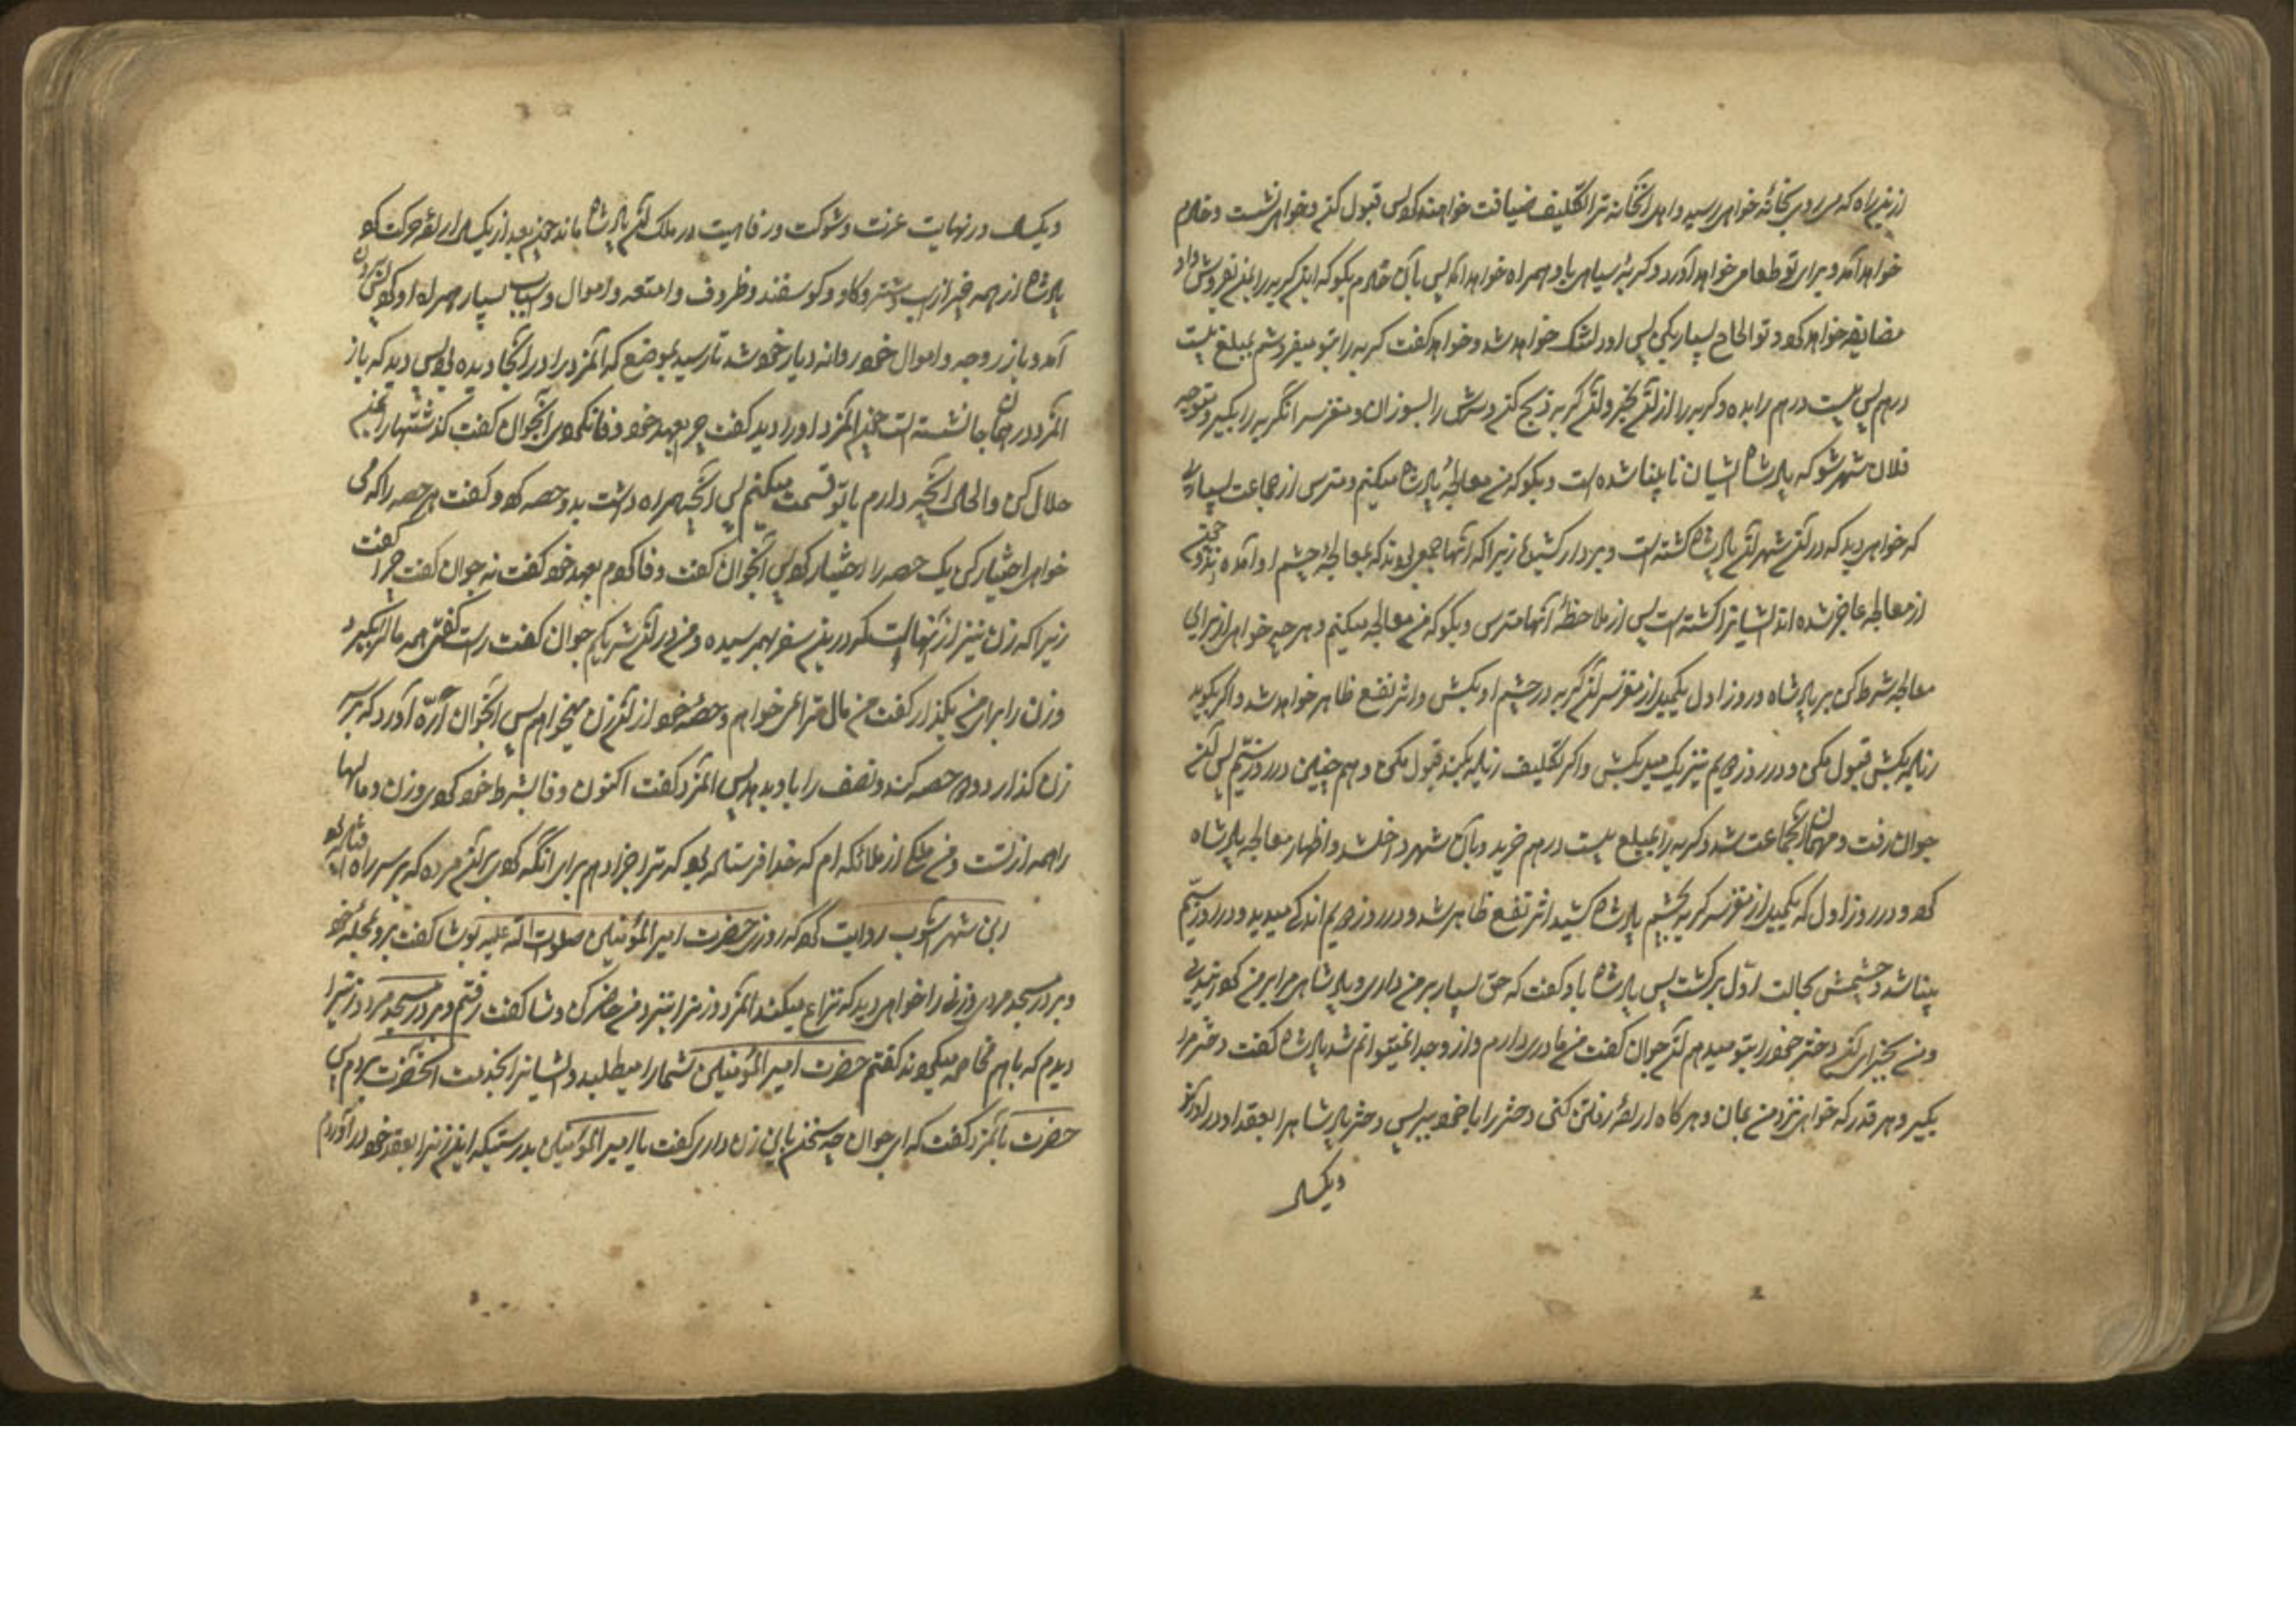 ازین راه که میروی بخانهٔ خواهی رسید و اهل آنخانه ترا تکلیف ضیافت خواهند کرد پس قبول کن و خواهی نشست و خادم
خواهد آمد و برای تو طعامی خواهد آورد و گربهٔ سیاهی با او همراه خواهد آمد پس بآن خادم بگو که این گربه را بمن بفروش و او
مضایقه خواهد کرد و تو الحاح بسیار بکن پس او دلتنک خواهد شد و خواهد گفت گربه را بتو میفروشم بمبلغ بیست
درهم پس بیست درهم را بده و گربه را از او بخر و آن گربه را ذبح کن و سرش را بسوزان و مغز سر آن گربه را بگیر و متوجه
فلان شهر شو که پادشاه ایشان نابینا شده است و بگو که من معالجهٔ پادشاه میکنم و مترس از جماعت بسیاری
که خواهی دید که در آن شهر آن پادشاه کشته است و بر دار کشیده زیرا که آنها جمعی بودند که بمعالجهٔ چشم او آمده بودند چون
از معالجه عاجز شده اند ایشانرا کشته است پس از ملاحظهٔ آنها مترس و بگو که من معالجه میکنم و هر چه خواهی از برای
معالجه شرط کن بر پادشاه و روز اول یکمیل از مغز سر آن گربه در چشم او بکش و اثر نفع ظاهر خواهد شد و اگر بگوید
زیاد بکش قبول مکن و در روز دویم نیز یک میل بکش و اگر تکلیف زیاد بکند قبول مکن و هم چنین در روز سیّم پس آن
جوان رفت و مهمان آنجماعت شد و گربه را بمبلغ بیست درهم خرید و بآن شهر داخل شد و اظهار معالجه پادشاه
کرد و در روز اول که یکمیل از مغز سر گربه بچشم پادشاه کشید اثر نفع ظاهر شد و در روز دویم اندکی میدید و در روز سیّم
بینا شد و چشمش بحالت اوّل برگشت پس پادشاه باو گفت که حق بسیار بر من داری و پادشاهی مرا بر من گردانیدی
و من بجزای آن دختر خود را بتو میدهم آن جوان گفت من مادری دارم و از او جدا نمیتوانم شد پادشاه گفت دختر مرا
بگیر و هر قدر که خواهی نزد من بمان و هر گاه ارادهٔ رفتن کنی دختر را با خود ببر پس دختر پادشاه را بعقد او در آورند
و یکسال
و یکسال در نهایت عزت و شوکت و رفاهیت در ملک آن پادشاه ماند چون بعد از یکسال ارادهٔ حرکت کرد
پادشاه از همه چیز از اسب و شتر و گاو و گوسفند و ظروف و امتعه و اموال و اسباب بسیار همراه او کرد پس بیرون
آمد و با زوجه و اموال خود روانه دیار خود شد تا رسید بموضع که آنمرد را در آنجا دیده بود پس دید که باز
آنمرد در همان جا نشسته است چون آنمرد او را دید گفت چرا بعهد خود وفا نکردی آنجوان گفت گذشتها را بمن
حلال کن و الحال آنچه دارم با تو قسمت میکنم پس آنچه همراه داشت بدو حصه کرد و گفت هر حصه را که می
خواهی اختیار کن یک حصه را اختیار کرد پس آنجوان گفت وفا کردم بعهد خود گفت نه جوان گفت چرا گفت
زیرا که زن نیز از آنهاست که درین سفر بهمرسیده و من در آن شریکم جوان گفت راست گفتی همه مال را بگیر
و زن را برای من بگذار گفت من مال ترا نمی خواهم و حصهٔ خود از آن زن میخواهم پس آنجوان ارّه آورد که بر سر
زن گذارد و دو حصه کند و نصف را باو بدهد پس آنمرد گفت اکنون وفا بشرط خود کردی و زن و مالها
را همه از تست و من ملکی از ملائکه ام که خدا فرستاده بود که ترا جزا دهم برای آنکه کردی بر آن مرده که بر سر راه افتاده بود
ابن شهر آشوب روایت کرد که روزی حضرت امیر المؤمنین صلوات الله علیه بوشا گفت برو بمحلهٔ خود
و بر در مسجد مردی و زنی را خواهی دید که نزاع میکنند آنمرد و زن را نزد من حاضر کن وشا گفت رفتم و بر در مسجد مرد و زنیرا
دیدم که با هم مخاصمه میکردند گفتم حضرت امیر المؤمنین شما را میطلبد و ایشانرا بخدمت آنحضرت بردم پس
حضرت بآنمرد گفت که ای جوان چه سخن باین زن داری گفت یا امیر المؤمنین بدرستیکه این زن را بعقد خود در آوردم